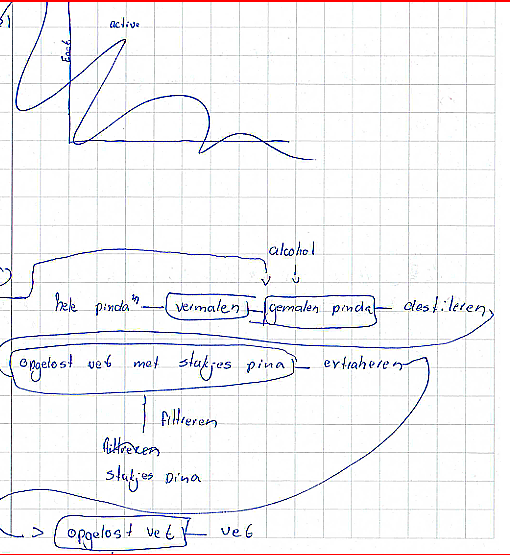 active
Each
alcohol
hele pinda'n vermalen gemalen pinda destileren
opgelost vet met stukjes pina extraheren
filtreren
filtreren
stukjes pina
opgelost vet vet